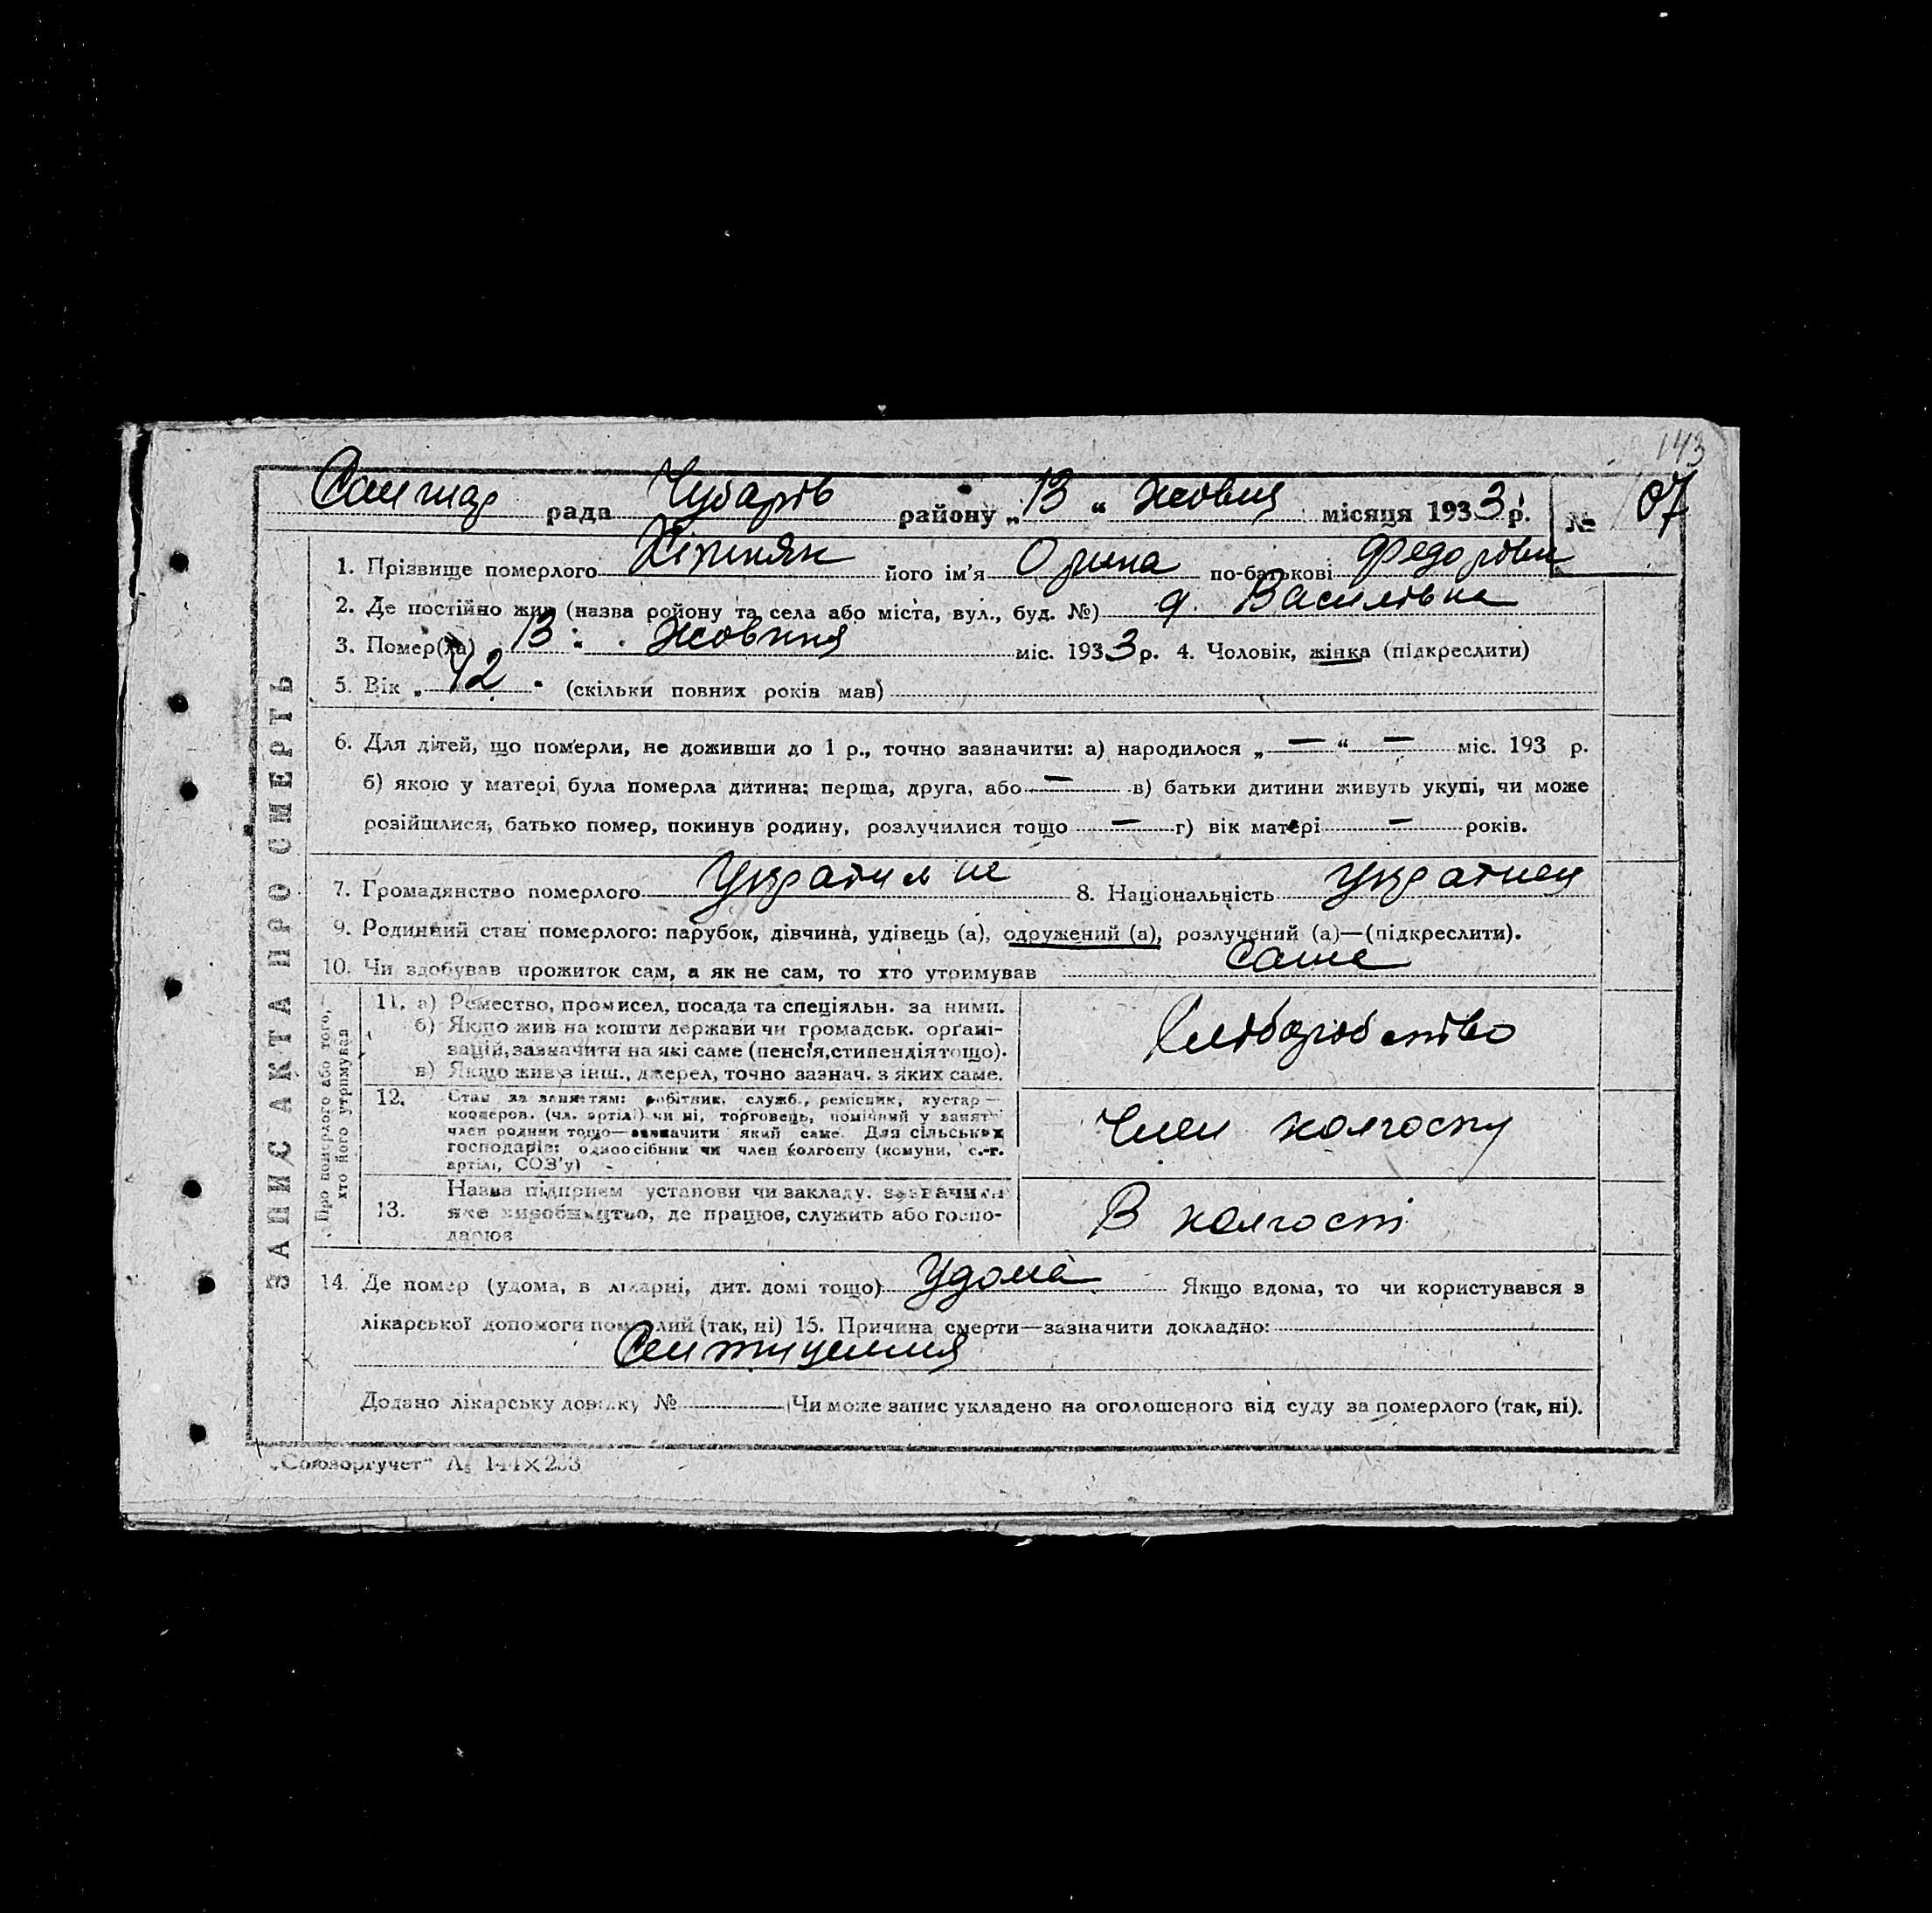 143
рада Чубарів району „13“ жовця місяця 1933 р. № 07
1. Прізвище померлого його ім'я Орина по-батькові Федорівн
2. Де постійно жив (назва району та села або міста, вул., буд. №) Василівка
3. Помер(ла) 13 Жовтня міс. 1933 р. 4. Чоловік, жінка (підкреслити)
5. Вік „42" (скільки повних років мав)
6. Для дітей, що померли, не доживши до 1 р., точно зазначити: а) народилося „—“ — міс. 193 р.
б) якою у матері була померла дитина: перша, друга, або — в) батьки дитини живуть укупі, чи може
розійшлися, батько помер, покинув родину, розлучилися тощо — г) вік матері — років.
7. Громадянство померлого 8. Національність
9. Родинний стан померлого: парубок, дівчина, удівець (а), одружений (а), розлучений (а)—(підкреслити).
10. Чи здобував прожиток сам, а як не сам, то хто утримував Саме
ЗАПИС АКТА ПРО СМЕРТЬ
Про померлого або того,
хто його утримував
11. а) Ремество, промисел, посада та спеціяльн. за ними.
б) Якщо жив на кошти держави чи громадськ. орґані-
зацій, зазначити на які саме (пенсія, стипендія тощо).
в) Якщо жив з інш., джерел, точно зазнач. з яких саме.
Хліборобство
12. Стан за заняттям: робітник, служб., ремісник, кустар—
кооперов. (чл. артілі) чи ні, торговець, помічний у занятті
член родини тощо—зазначити який саме. Для сільських
господарів: одноосібник чи член колгоспу (комуни, с.-г.
артілі, СОЗ'у)
Член колгоспу
13. Назва підприєм установи чи закладу. зазначити
яке виробництво, де працює, служить або госпо-
дарює
В колгоспі
14. Де помер (удома, в лікарні, дит. домі тощо) Удома Якщо вдома, то чи користувався з
лікарської допомоги померлий (так, ні) 15. Причина смерти—зазначити докладно:
Додано лікарську довідку № Чи може запис укладено на оголошеного від суду за померлого (так, ні).
„Союзоргучет"